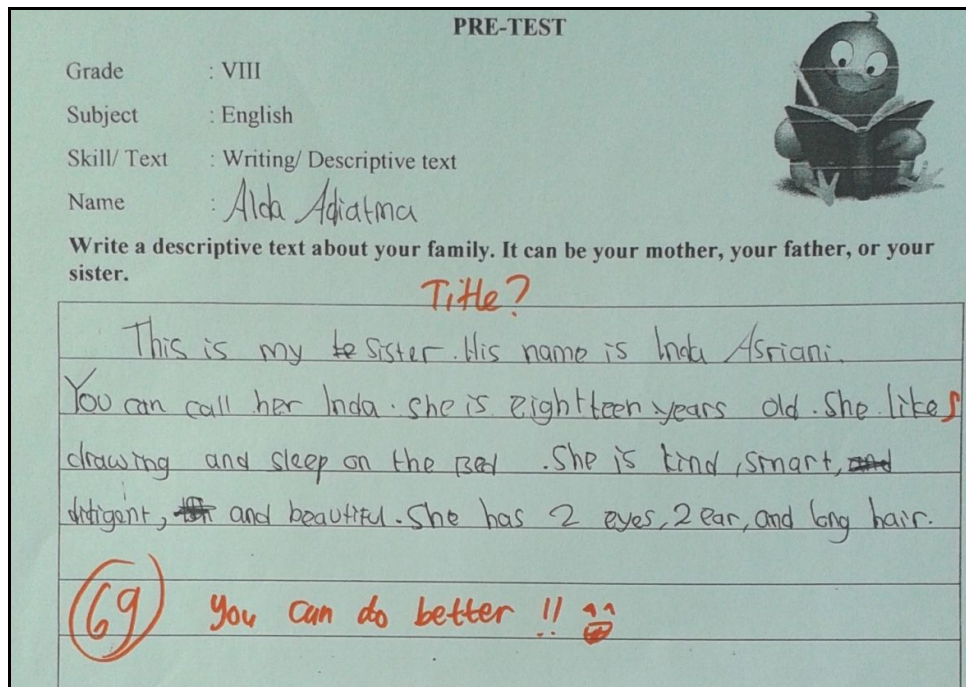 PRE-TEST
Grade : VIII
Subject : English
Skill/ Text : Writing/ Descriptive text
Name : Alda Adiatma
Write a descriptive text about your family. It can be your mother, your father, or your
sister.
Title?
This is my sister. His name is Inda Asriani.
You can call her Inda. She is eightteen years old. She likes
drawing and sleep on the Bed. She is kind, smart, and
ditigent, and beautiful. She has 2 eyes, 2 ear, and long hair.
69 You can do better !!